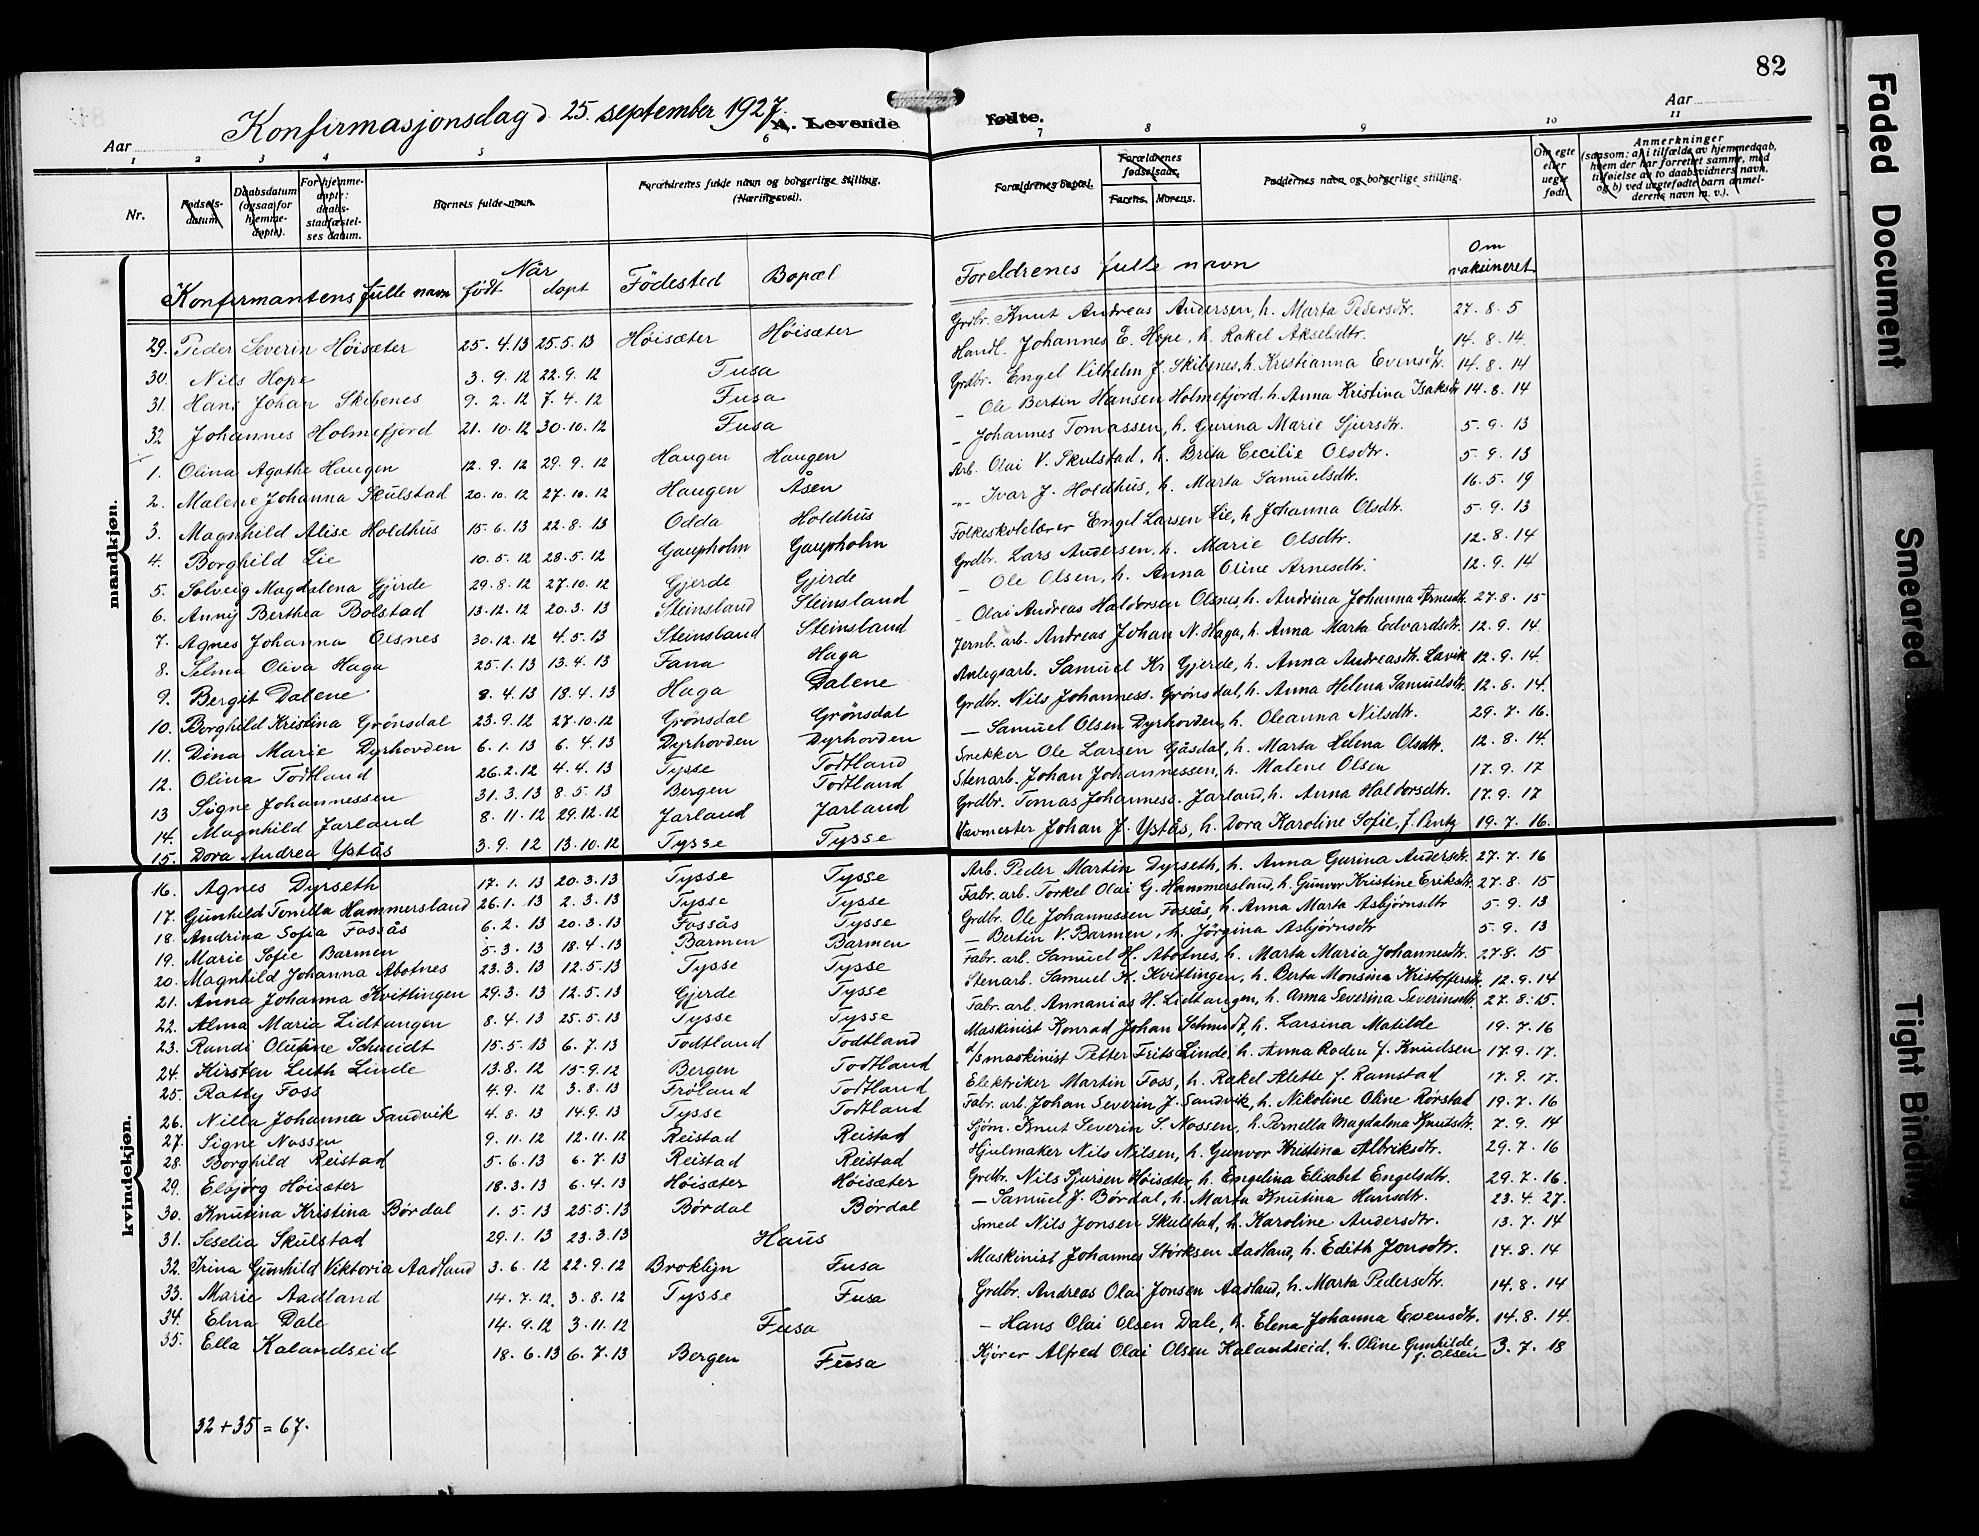 82
Konfirmasjonsdag d 25. september 1927.
A. Levende
fødte.
Aar
Aar
1 2 3 4 5 6 7 8 9 10 11
Nr.
Fødsels-datum.
Daabsdatum (ogsaa for hjemme-døpte).
For hjemme-døpte: daabs-stadfæstel-ses datum.
Barnets fulde navn.
Forældrenes fulde navn og borgerlige stilling. (Næringsvei).
Forældrenes bopæl.
Forældrenes fødselsaar.
Farens. Morens.
Faddernes navn og borgerlige stilling.
Om egte eller uegte født.
Anmerkninger
(saasom: a) i tilfælde av hjemmedaab, hvem der har forrettet samme, med tilføielse av to daabsvidners navn, og b) ved uegtefødte barn anmel-derens navn m. v.).
Konfirmantens fulle navn Når født døpt Fødested Bopæl Foreldrenes fulle navn Om vaksineret
29. Peder Severin Höisæter 25.4.13 25.5.13 Höisæter Höisæter Grdbr. Knut Andreas Andersen, h. Marta Pedersdtr. 27.8.5
30. Nils Hope 3.9.12 22.9.12 Fusa Handl. Johannes E. Hope, h. Rakel Akselsdtr. 14.8.14
31. Hans Johan Skibenes 9.2.12 7.4.12 Fusa Grdbr. Engel Vilhelm J. Skibenes, h. Kristianna Evensdtr. 14.8.14
32 Johannes Holmefjord 21.10.12 30.10.12 Fusa - Ole Bertin Hansen Holmefjord, h. Anna Kristina Isaksdtr 14.8.14
1. Olina Agathe Haugen 12.9.12 29.9.12 Haugen Haugen - Johannes Tomassen, h. Gurina Marie Sjursdtr. 5.9.13
2. Malene Johanna Skulstad 20.10.12 27.10.12 Haugen Åsen Arb. Olai V. Skulstad, h. Brita Cecilie Olsdtr. 5.9.13
3. Magnhild Alise Holdhus 15.6.13 22.8.13 Odda Holdhus -"- Ivar J. Holdhus, h. Marta Samuelsdtr. 16.5.19
4. Borghild Lie 10.5.12 28.5.12 Gaupholm Gaupholm Folkeskolelærer Engel Larsen Lie, h. Johanna Olsdtr. 5.9.13
5. Solveig Magdalena Gjerde 29.8.12 27.10.12 Gjerde Gjerde Grdbr. Lars Andersen, h. Marie Olsdtr. 12.8.14
6. Anny Berthea Bolstad 13.12.12 20.3.13 Steinsland Steinsland - Ole Olsen, h. Anna Oline Arnesdtr. 12.9.14
7. Agnes Johanna Olsnes 30.12.12 4.5.13 Steinsland Steinsland - Olai Andreas Haldorsen Olsnes, h. Andrina Johanna Arnesdtr. 27.8.15
8. Selma Oliva Haga 25.1.13 13.4.13 Fana Haga Jernb. arb. Andreas Johan N. Haga, h. Anna Marta Edvardsdtr. 12.9.14
9. Bergit Dalene 8.4.13 18.4.13 Haga Dalene Anlegsarb. Samuel Kr. Gjerde, h. Anna Andreasdtr. Lavik 12.9.14.
10. Borghild Kristina Grönsdal 23.9.12 27.10.12 Grönsdal Grönsdal Grdbr. Nils Johanness. Grönsdal, h. Anna Helena Samuelsdtr. 12.8.14.
11. Dina Marie Dyrhovden 6.1.13 6.4.13 Dyrhovden Dyrhovden - Samuel Olsen Dyrhovden, h. Oleanna Nilsdtr. 29.7.16.
12. Olina Todtland 26.2.12 4.4.13 Tysse Todtland Snekker Ole Larsen Gåsdal, h. Marta Helena Olsdtr. 12.8.14.
13 Signe Johannessen 31.3.13 8.5.13 Bergen Todtland Stenarb. Johan Johannessen, h. Malene Olsen 17.9.17
14. Magnhild Jarland 8.11.12 29.12.12 Jarland Jarland Grdbr. Tomas Johanness. Jarland, h. Anna Haldorsdtr. 17.9.17
15. Dora Andrea Ystås 3.9.12 13.10.12 Tysse Tysse Vævmester Johan J. Ystås, h. Dora Karoline Sofie, f. Pentz 19.7.16.
16. Agnes Dyrseth 17.1.13 20.3.13 Tysse Tysse Arb. Peder Martin Dyrseth, h. Anna Gurina Andersdtr. 27.7.16
17. Gunhild Tonilla Hammersland 26.1.13 2.3.13 Tysse Tysse Fabr. arb. Torkel Olai G. Hammersland, h. Gunvor Kristine Eriksdtr. 27.8.15
18. Andrina Sofia Fossås 6.2.13 20.3.13 Fossås Tysse Grdbr. Ole Johannessen Fossås, h. Anna Marta Asbjörnsdtr 5.9.13
19. Marie Sofie Barmen 5.3.13 18.4.13 Barmen Barmen - Bertin V. Barmen, h. Jörgina Asbjörnsdtr 5.9.13
20. Magnhild Johanna Abotnes 23.3.13 12.5.13 Tysse Tysse Fabr. arb. Samuel H. Abotnes, h. Marta Maria Johannesdtr. 27.8.15
21. Anna Johanna Kvittingen 29.3.13 12.5.13 Gjerde Tysse Stenarb. Samuel H. Kvittingen, h. Berta Monsina Kristoffersdtr. 12.9.14
22. Alma Maria Lidtangen 8.4.13 25.5.13 Tysse Tysse Fabr. arb. Annanias H. Lidtangen, h. Anna Severina Severinsdtr. 27.8.15.
23. Randi Olufine Schmidt 15.5.13 6.7.13 Todtland Todtland Maskinist Konrad Johan Schmidt, h. Larsina Matilde 19.7.16
24. Kirsten Luth Linde 13.8.12 15.9.12 Bergen Todtland d/s maskinist Petter Frits Linde, h. Anna Roden f. Knudsen 17.9.17.
25. Ratty Foss 4.9.12 3.8.13 Fröland Todtland Elektriker Martin Foss, h. Rakel Alette f. Ramstad 17.9.17.
26. Nilla Johanna Sandvik 4.8.13 14.9.13 Tysse Todtland Fabr. arb. Johan Severin J. Sandvik, h. Nikoline Oline Rørstad 19.7.16
27. Signe Nossen 9.11.12 12.11.12 Reistad Reistad Sjöm. Knut Severin S. Nossen, h. Pernella Magdalena Knutsdtr. 7.9.14
28. Borghild Reistad 5.6.13 6.7.13 Reistad Reistad Hjulmaker Nils Nilsen, h. Gunvor Kristina Albriksdtr. 29.7.16
29. Elsbjörg Höisæter 18.3.13 6.4.13 Höisæter Höisæter Grdbr. Nils Sjursen Höisæter, h. Engelina Elisabet Engelsdtr. 29.7.16.
30. Knutina Kristina Børdal 1.5.13 25.5.13 Børdal Børdal - Samuel J. Børdal, h. Marta Knutina Hansdtr. 23.4.27.
31. Seselia Skulstad 29.1.13 23.3.13 Haus Smed Nils Jonsen Skulstad, h. Karoline Andersdtr. 13.7.14
32. Irina Gunhild Viktoria Aadland 3.6.12 22.9.12 Broklyn Fusa Maskinist Johannes Størksen Aadland, h. Edith Jonsdtr. 14.8.14
33. Marie Aadland 14.7.12. 3.8.12 Tysse Fusa Grdbr. Andreas Olai Jonsen Aadland, h. Marta Pedersdtr. 14.8.14
34. Elna Dale 14.9.12 3.11.12 Fusa - Hans Olai Olsen Dale, h. Elena Johanna Evensdtr. 14.8.14.
35. Ella Kalandseid 18.6.13 6.7.13 Bergen Fusa Kjører Alfred Olai Olsen Kalandseid, h. Oline Gunhilde f. Olsen 3.7.18
32 + 35 = 67.
mandkjøn.
kvindekjøn.
Faded Document
Smeared
Tight Binding